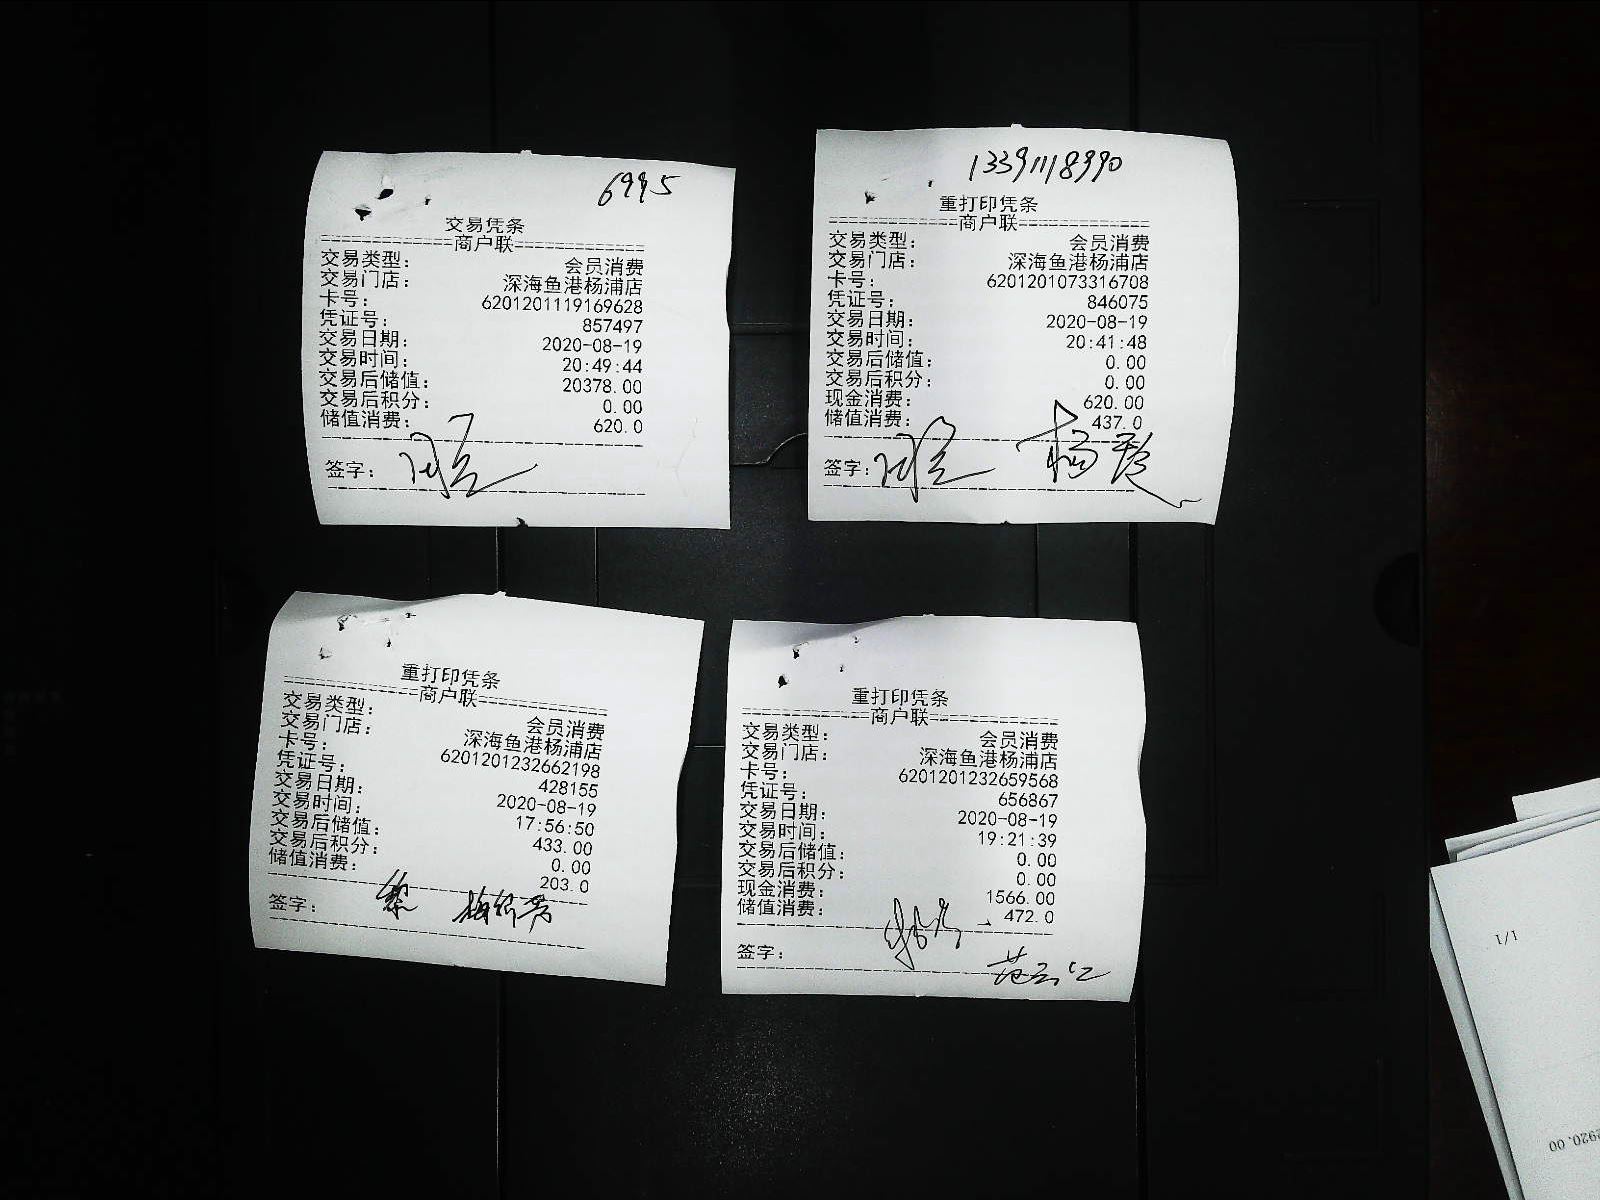 6995
交易凭条
==============商户联==============
交易类型： 会员消费
交易门店： 深海鱼港杨浦店
卡号： 6201201119169628
凭证号： 857497
交易日期： 2020-08-19
交易时间： 20:49:44
交易后储值： 20378.00
交易后积分： 0.00
储值消费： 620.0
签字：
13391118990
重打印凭条
==============商户联==============
交易类型： 会员消费
交易门店： 深海鱼港杨浦店
卡号： 6201201073316708
凭证号： 846075
交易日期： 2020-08-19
交易时间： 20:41:48
交易后储值： 0.00
交易后积分： 0.00
现金消费： 620.00
储值消费： 437.0
签字：
重打印凭条
==============商户联==============
交易类型： 会员消费
交易门店： 深海鱼港杨浦店
卡号： 6201201232662198
凭证号： 428155
交易日期： 2020-08-19
交易时间： 17:56:50
交易后储值： 433.00
交易后积分： 0.00
储值消费： 203.0
签字：
重打印凭条
==============商户联==============
交易类型： 会员消费
交易门店： 深海鱼港杨浦店
卡号： 6201201232659568
凭证号： 656867
交易日期： 2020-08-19
交易时间： 19:21:39
交易后储值： 0.00
交易后积分： 0.00
现金消费： 1566.00
储值消费： 472.0
签字：
1/1
2920.00